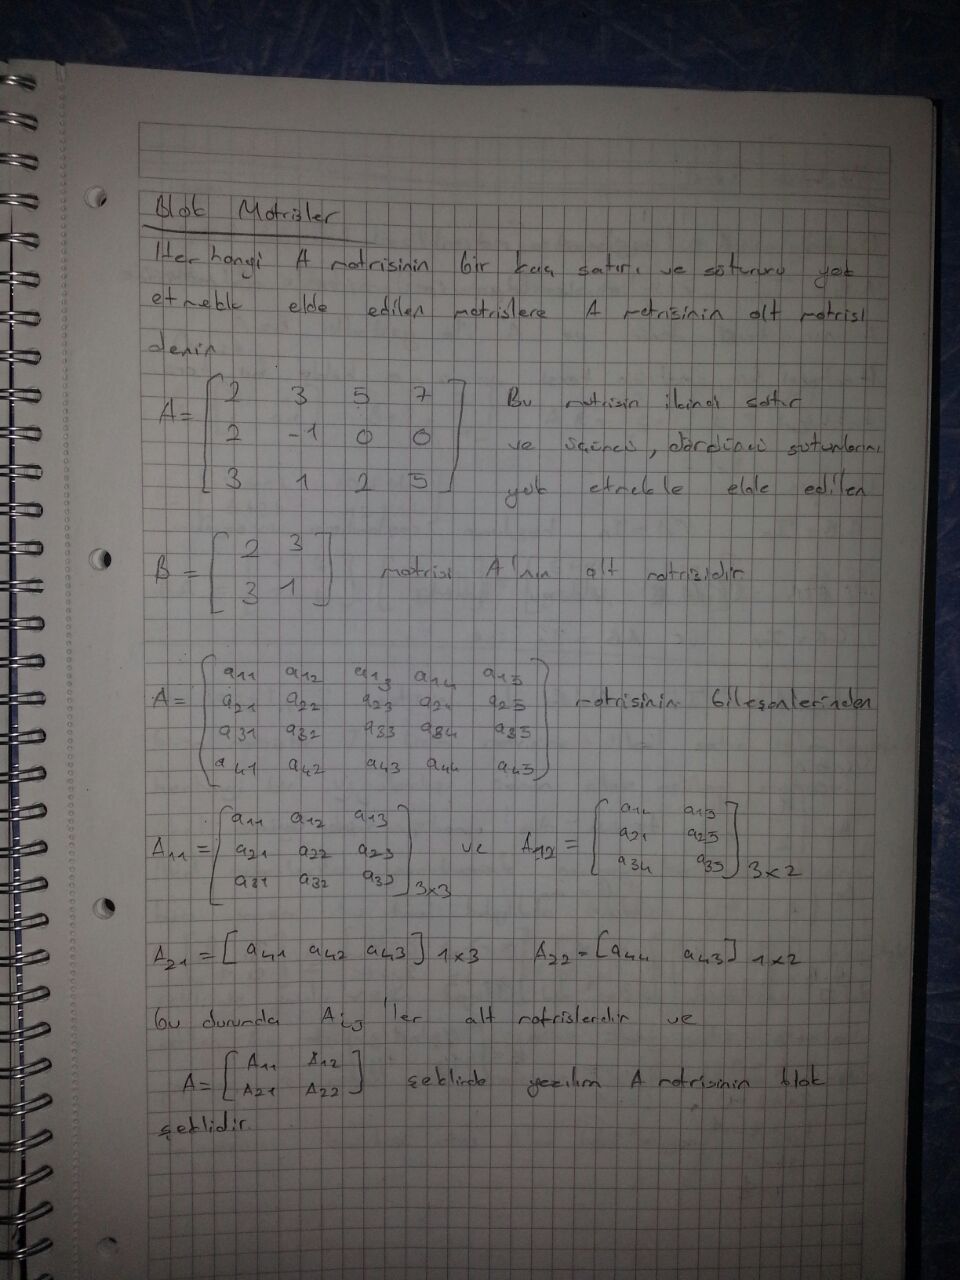 Blok Matrisler
Her hangi A matrisinin bir kaç satırı ve sütununu yok
etmekle elde edilen matrislere A matrisinin alt matrisi
denir
A = [ 2 3 5 7 Bu matrisin ikinci satır
2 -1 0 0 ve üçüncü, dördüncü sütunlarını
3 1 2 5 ] yok etmekle elde edilen
B = [ 2 3
3 1 ] matrisi A'nın alt matrisidir
A = [ a11 a12 a13 a14 a15
a21 a22 a23 a24 a25 matrisinin bileşenlerinden
a31 a32 a33 a34 a35
a41 a42 a43 a44 a45 ]
A11 = [ a11 a12 a13
a21 a22 a23
a31 a32 a33 ] 3x3 ve A12 = [ a14 a15
a24 a25
a34 a35 ] 3x2
A21 = [ a41 a42 a43 ] 1x3 A22 = [ a44 a45 ] 1x2
bu durumda Aij 'ler alt matrislerdir ve
A = [ A11 A12
A21 A22 ] şeklinde yazılım A matrisinin blok
şeklidir.